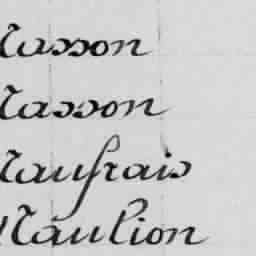 Masson
Masson
Maufrais
Maulion